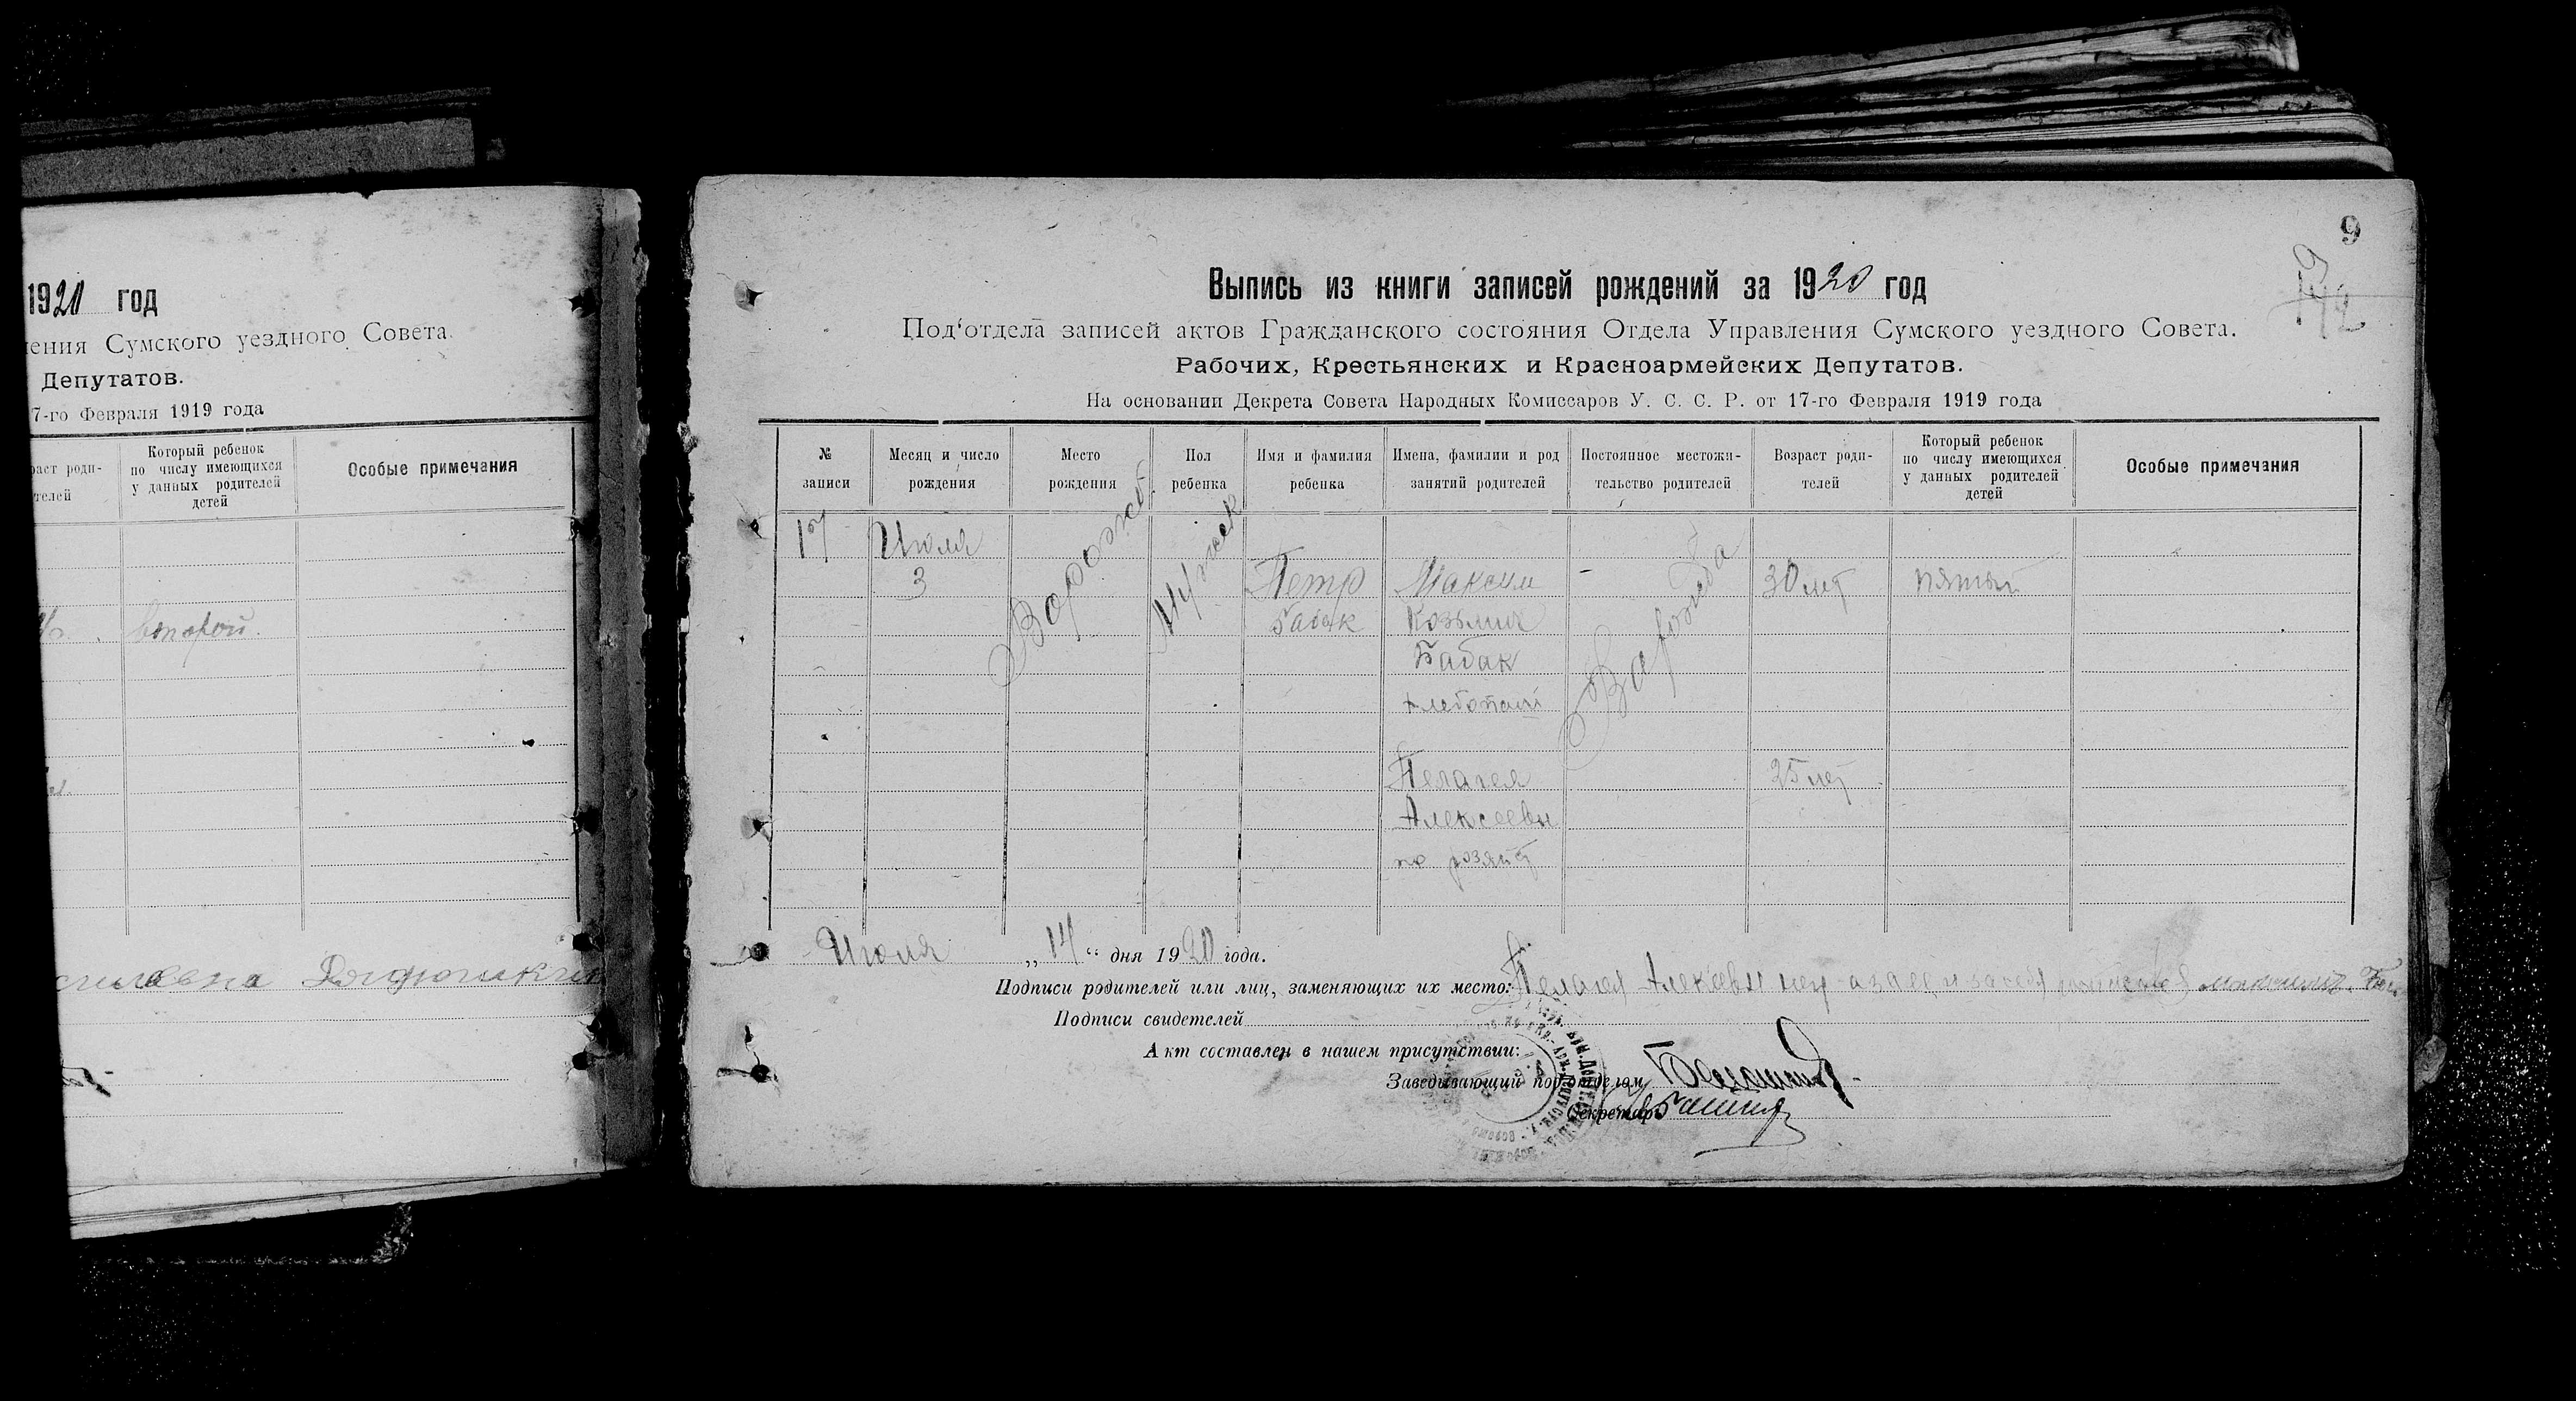 1920 год
Сумского уездного Совета.
Депутатов.
7-го Февраля 1919 года
Который ребенок
по числу имеющихся
у данных родителей
детей
Особые примечания
второй.
9
Выпись из книги записей рождений за 1920 год
Под‘отдела записей актов Гражданского состояния Отдела Управления Сумского уездного Совета.
Рабочих, Крестьянских и Красноармейских Депутатов.
На основании Декрета Совета Народных Комиссаров У. С. С. Р. от 17-го Февраля 1919 года
№
записи
Месяц и число
рождения
Место
рождения
Пол
ребенка
Имя и фамилия
ребенка
Имена, фамилии и род
занятий родителей
Постоянное местожи-
тельство родителей
Возраст роди-
телей
Который ребенок
по числу имеющихся
у данных родителей
детей
Особые примечания
17
Июля
3
Ворожб.
Мужск
Петр
Бабак
Максим
Козьмич
Бабак
хлебопаш
Ворожба
30 лет
пятый
Пелагея
Алексеевн
по хозяйст
25 лет
Июля „14“ дня 1920 года.
Подписи родителей или лиц, заменяющих их место: Пелагея
Подписи свидетелей
Акт составлен в нашем присутствии:
Заведывающий под‘отделом
Секретарь